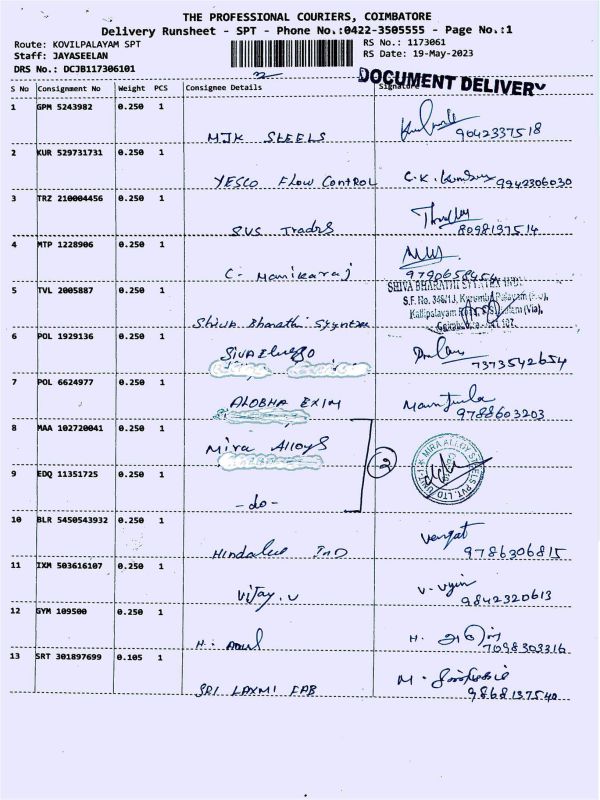 THE PROFESSIONAL COURIERS, COIMBATORE
Delivery Runsheet - SPT - Phone No.:0422-3505555 - Page No.:1
Route: KOVILPALAYAM SPT
RS No.: 1173061
Staff: JAYASEELAN
RS Date: 19-May-2023
DRS No.: DCJB117306101
DOCUMENT DELIVERY
S No Consignment No Weight PCS Consignee Details Signature
1 GPM 5243982 0.250 1
MJK STEELS 9042337518
2 KUR 529731731 0.250 1
YESCO Flow Control C.K. 9942306030
3 TRZ 210004456 0.250 1
SVS Tradrs 8098137514
4 MTP 1228906 0.250 1
C. Manikaraj 9790658454
5 TVL 2005887 0.250 1
SHIVA BHARATHI
S.F. No. 346/1J,
Kallipalayam (Via),
Shiva Bharathi
6 POL 1929136 0.250 1
7373542654
7 POL 6624977 0.250 1
ALOBHA EXIM 9788603203
8 MAA 102720041 0.250 1
Mira Alloys
MIRA ALLOY STEELS PVT. LTD UNIT-I
2
9 EDQ 11351725 0.250 1
-do-
10 BLR 5450543932 0.250 1
Venkat
9786306815
11 IXM 503616107 0.250 1
Vijay.V
9842320613
12 GYM 109500 0.250 1
H.
H. 7098303316
13 SRT 301897699 0.105 1
SRI LAXMI FAB
M. 9868137540